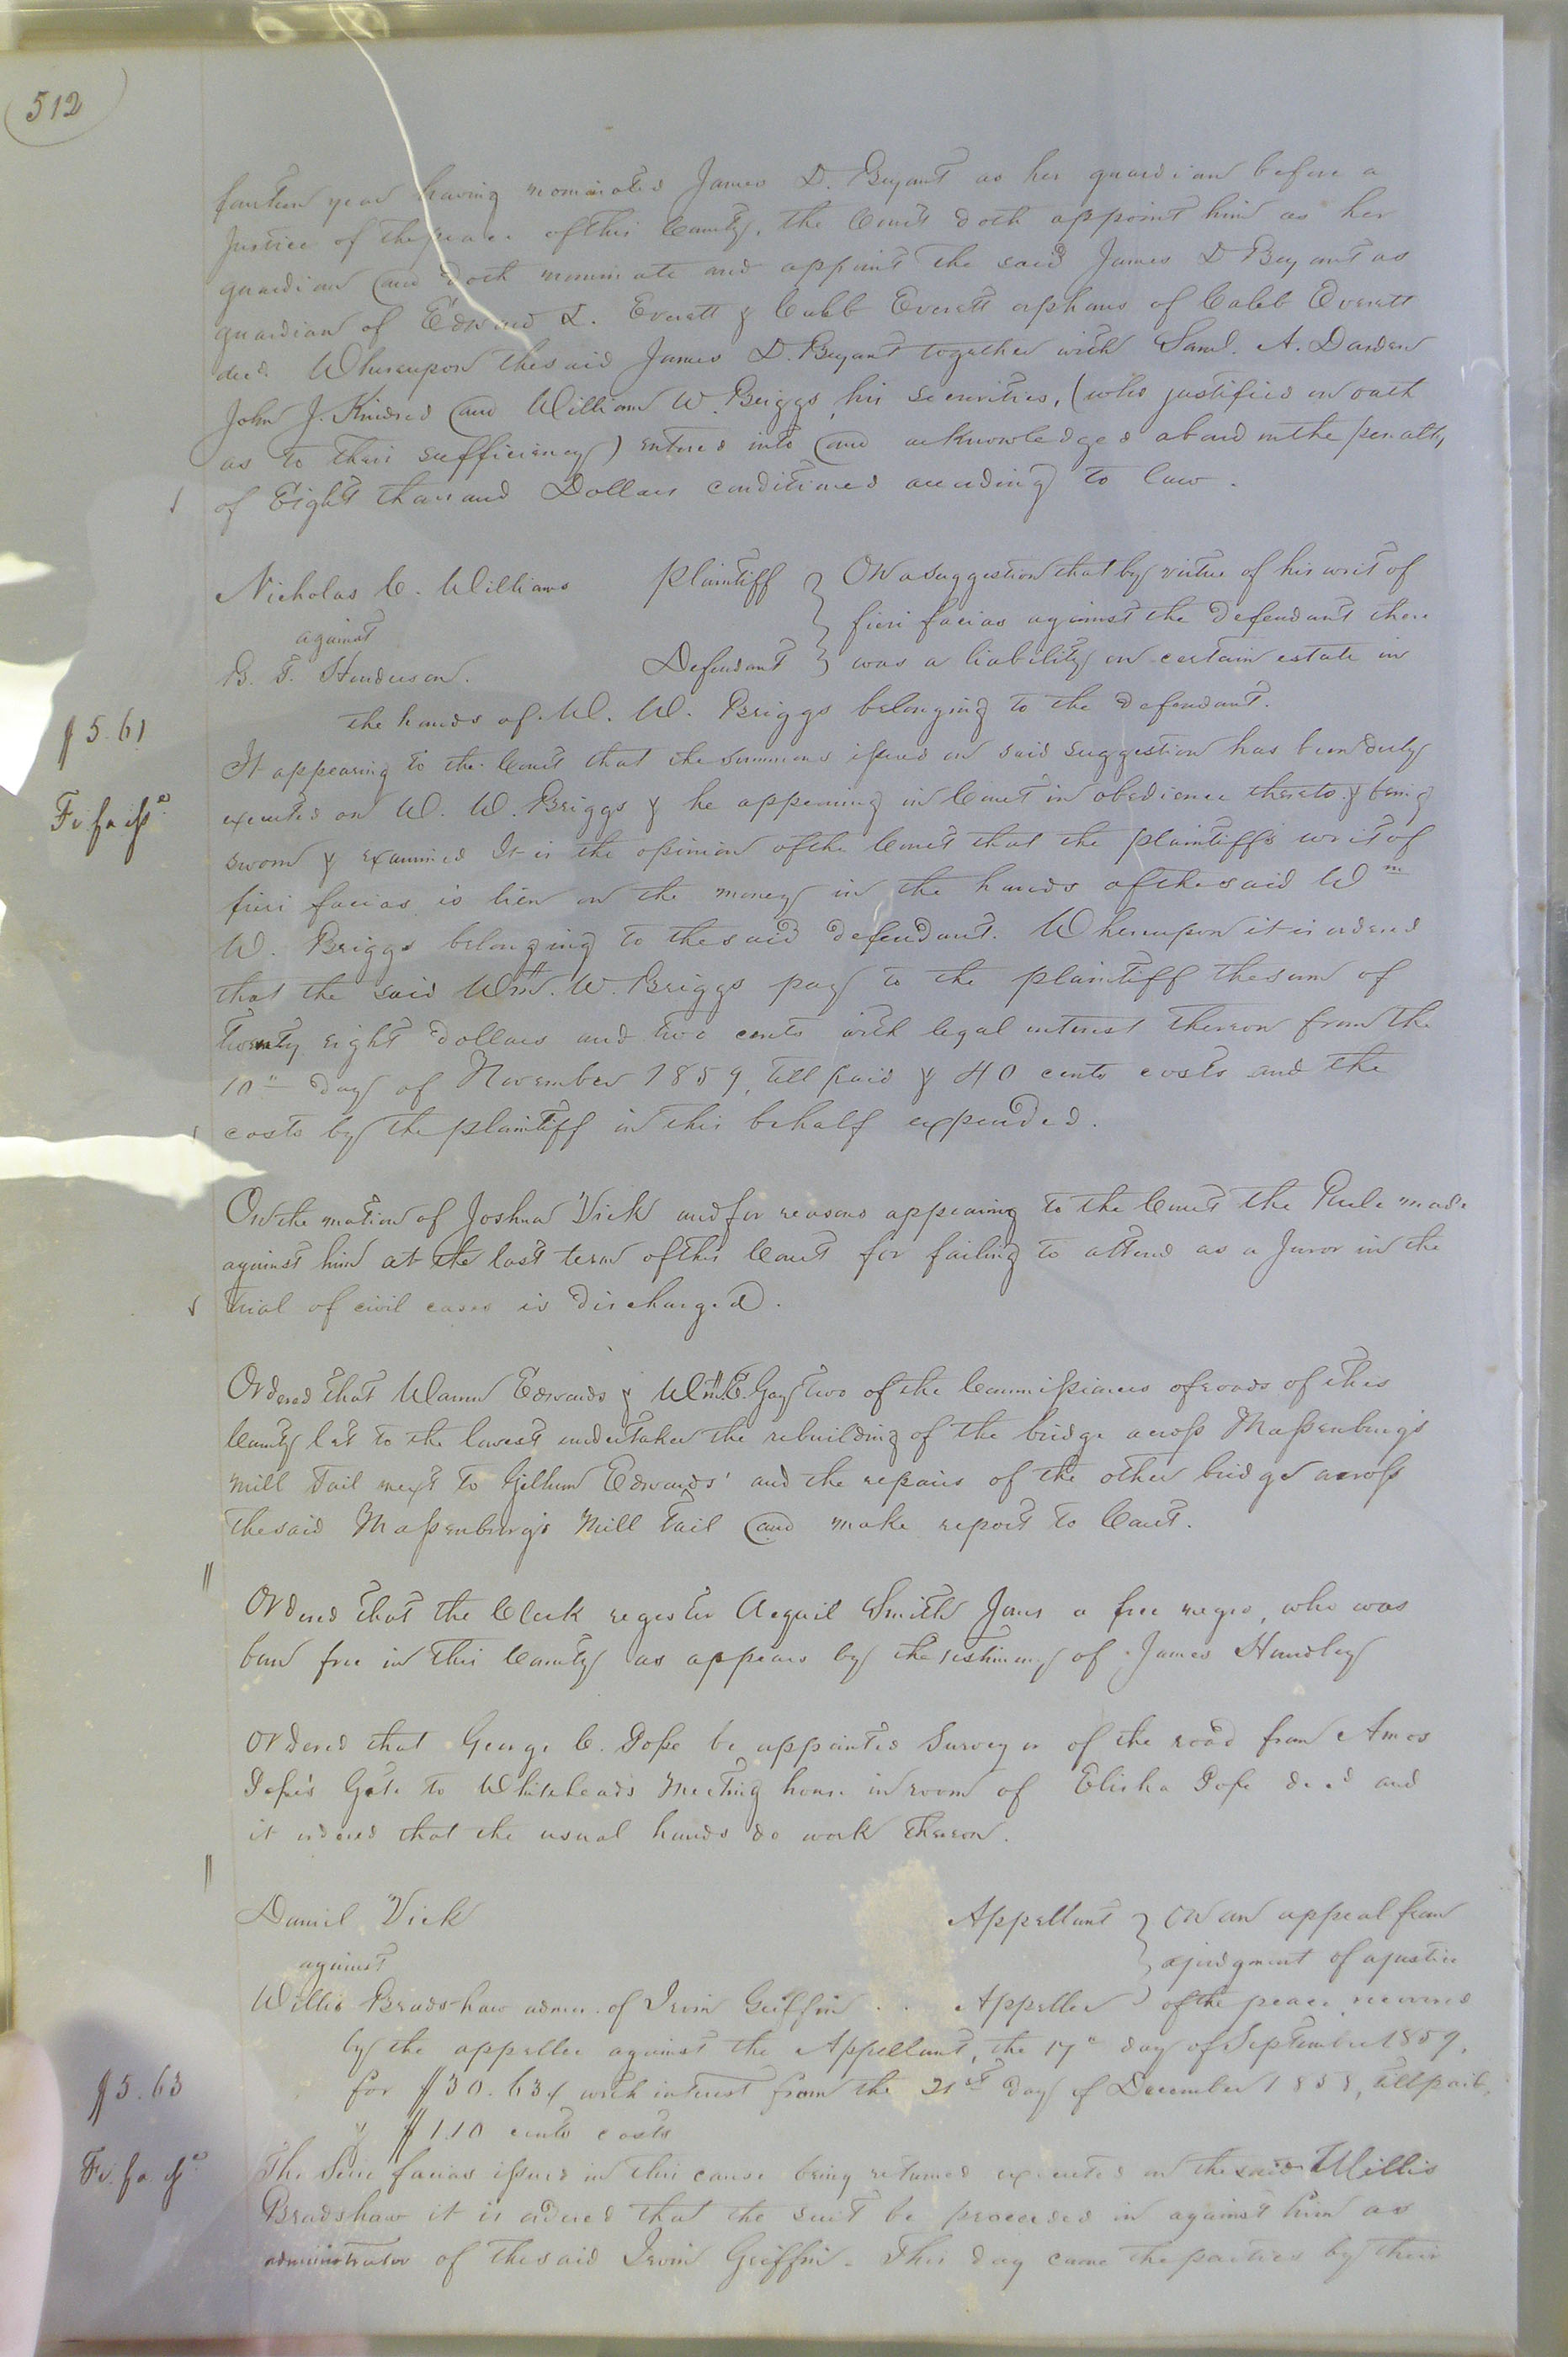 512
fourteen year having nominated James D. Bryant as her guardian before a
Justice of the peace of this County, the Court doth appoint him as her
guardian and doth nominate and appoint the said James D Bryant as
guardian of Edward L. Everett & Caleb Everett orphans of Caleb Everett
decd. Whereupon the said James D. Bryant together with Saml. A. Darden
John J. Kindred and William W. Briggs his securities, (who justified on oath
as to their sufficiency) entered into and acknowledged a bond in the penalty
of Eight thousand Dollars conditioned according to law.
Nicholas C. Williams Plaintiff } On a suggestion that by virtue of his writ of
against } fieri facias against the defendant there
B. T. Henderson. Defendant } was a liability on certain estate in
the hands of W. W. Briggs belonging to the defendant.
$5.61
It appearing to the Court that the summons issued on said suggestion has been duly
Fi. fa issd
executed on W. W. Briggs & he appearing in Court in obedience thereto & being
sworn & examined It is the opinion of the Court that the plaintiffs writ of
fieri facias is lien on the money in the hands of the said Wm
W. Briggs belonging to the said defendant. Whereupon it is ordered
that the said Wm. W. Briggs pay to the plaintiff the sum of
twenty eight dollars and two cents with legal interest thereon from the
10th day of November 1859, till paid & 40 cents costs and the
costs by the plaintiff in this behalf expended.
On the motion of Joshua Vick and for reasons appearing to the Court the Rule made
against him at the last term of this Court for failing to attend as a Juror in the
trial of civil cases is discharged.
Ordered that Warren Edwards & Wm. E. Gay two of the Commissioners of roads of this
County let to the lowest undertaker the rebuilding of the bridge across Massenburg's
mill tail next to Gilliam Edwards' and the repairs of the other bridge across
the said Massenburg's Mill tail and make report to Court.
Ordered that the Clerk register Smith Jones a free negro, who was
born free in this County as appears by the testimony of James Handley
Ordered that George C. Pope be appointed Surveyor of the road from Amos
Pope's Gate to Whitehead's Meeting house in room of Elisha Pope decd and
it ordered that the usual hands do work thereon.
Daniel Vick Appellant } On an appeal from
against } a judgment of a justice
Willis Bradshaw admor. of Irvin Griffin .. Appellee } of the peace recovered
by the appellee against the Appellant, the 17th day of September 1859,
$5.63
for $30.63¢ with interest from the 21st day of December 1858, till paid,
& $1.10 cents costs
Fi. fa. issd
The Scire facias issued in this cause being returned executed on the said Willis
Bradshaw it is ordered that the suit be proceeded in against him as
administrator of the said Irvin Griffin. This day came the parties by their